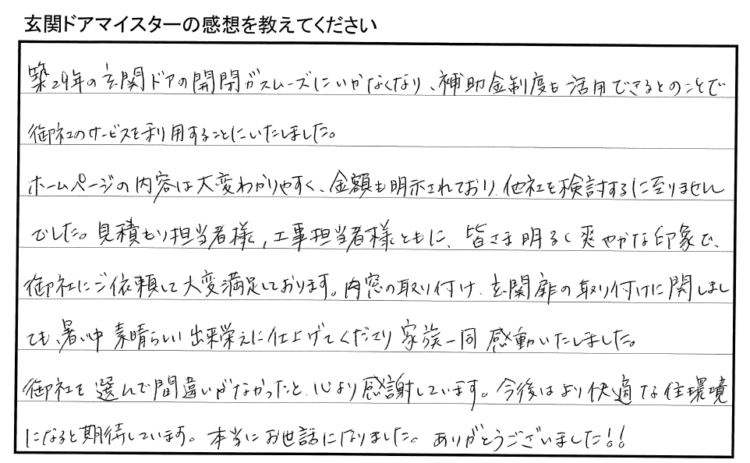 玄関ドアマイスターの感想を教えてください
築24年の玄関ドアの開閉がスムーズにいかなくなり、補助金制度も活用できるとのことで
御社のサービスを利用することにいたしました。
ホームページの内容は大変わかりやすく、金額も明示されており、他社を検討するに至りません
でした。見積もり担当者様、工事担当者様ともに、皆さま明るく爽やかな印象で、
御社にご依頼して大変満足しております。内窓の取り付け、玄関扉の取り付けに関しまし
ても、暑い中 素晴らしい出来栄えに仕上げてくださり 家族一同 感動いたしました。
御社を選んで間違いがなかったと、心より感謝しています。今後はより快適な住環境
になると期待しています。本当にお世話になりました。ありがとうございました!!